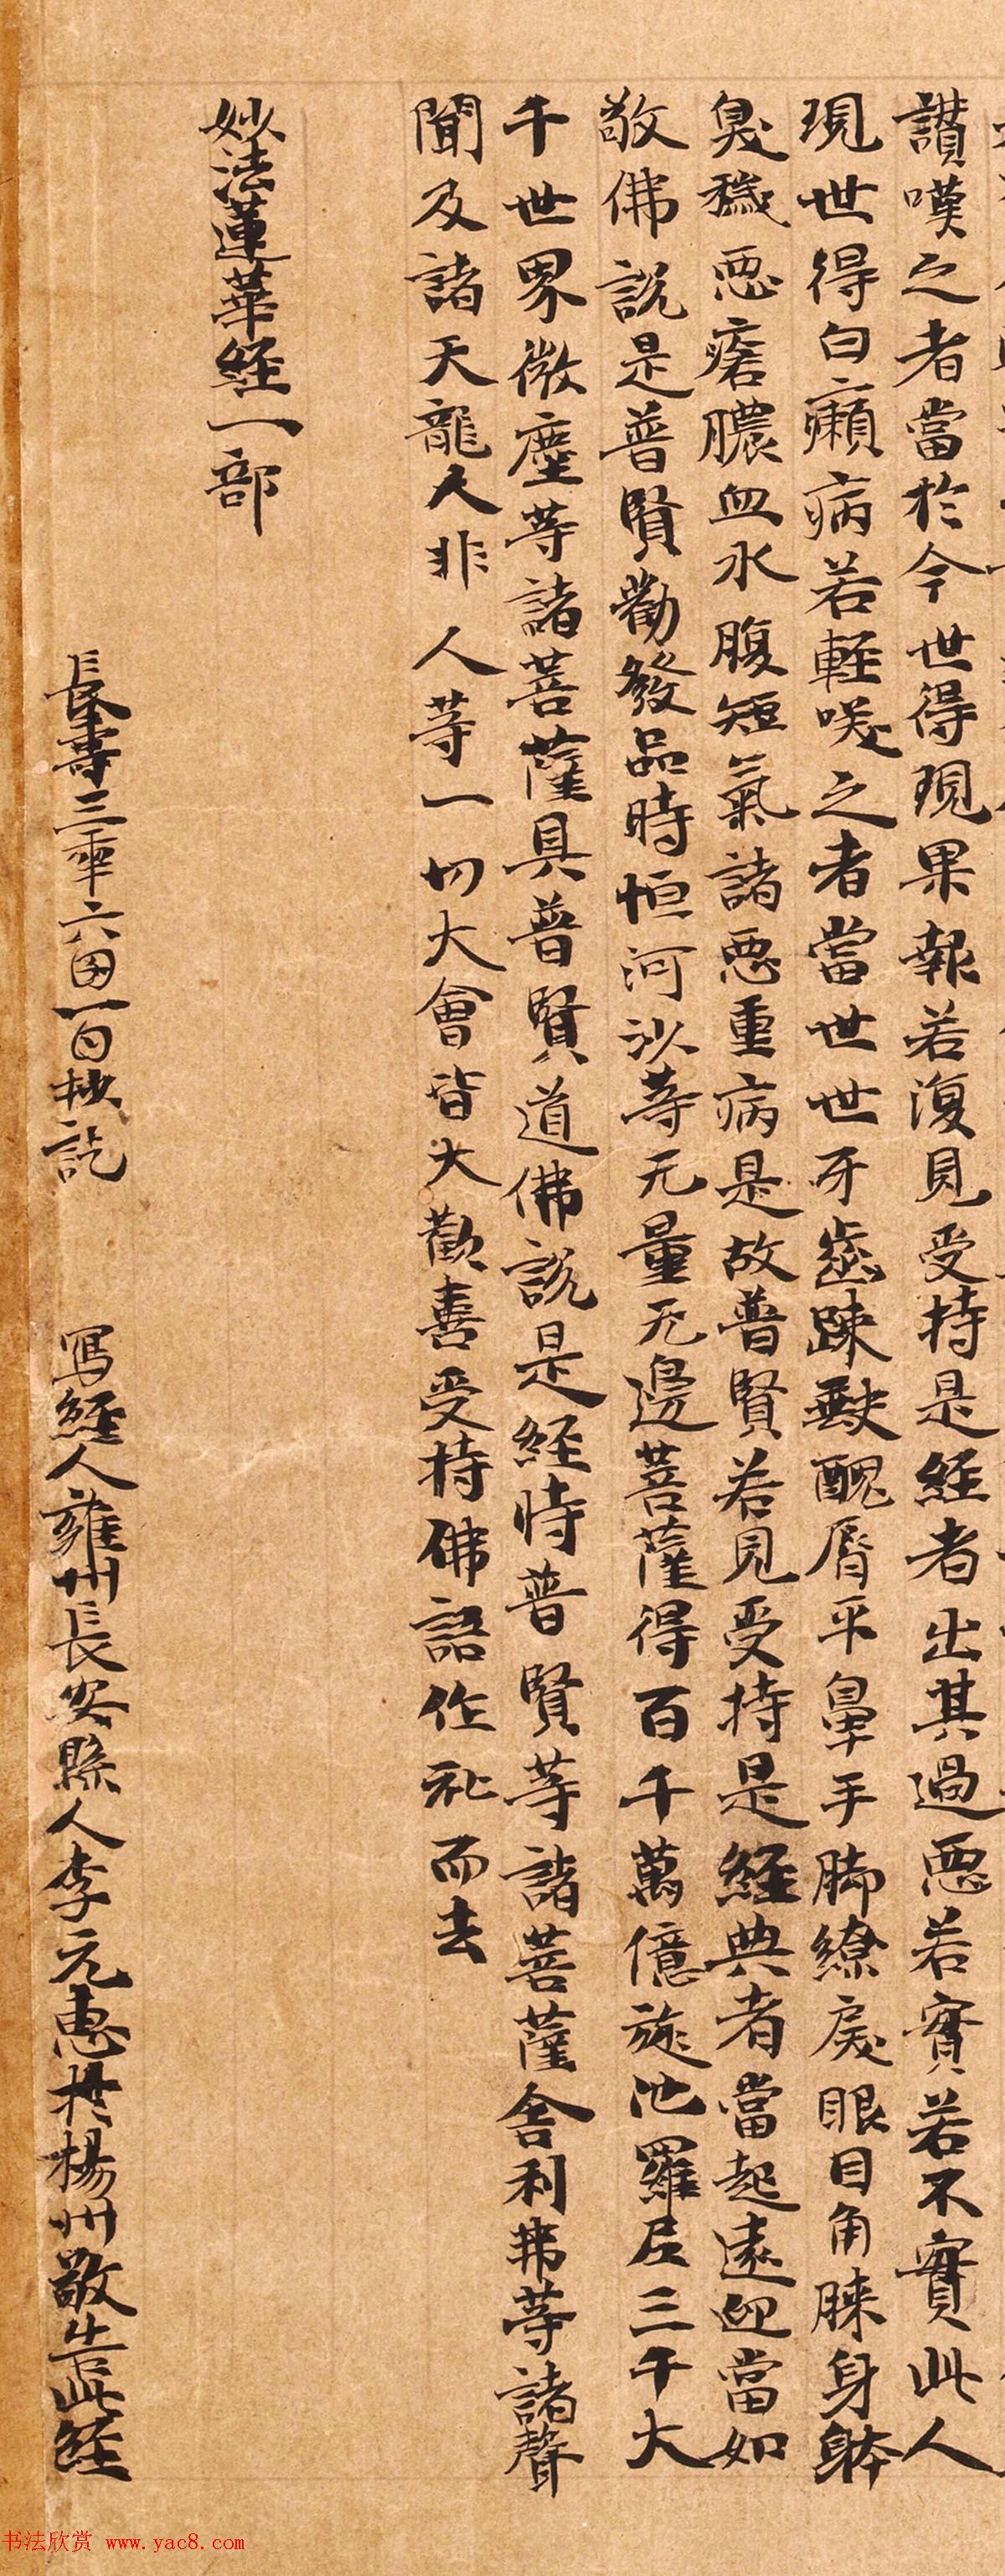 讃嘆之者當於今世得現果報若復見受持是經者出其過惡若實若不實此人
現世得白癩病若輕咲之者當世世牙齒踈缺醜脣平鼻手脚繚戾眼目角睞身躰
臭穢惡瘡膿血水腹短氣諸惡重病是故普賢若見受持是經典者當起遠迎當如
敬佛說是普賢勸發品時恒河沙等无量无邊菩薩得百千萬億旋池羅尼三千大
千世界微塵等諸菩薩具普賢道佛說是經時普賢等諸菩薩舍利弗等諸聲
聞及諸天龍人非人等一切大會皆大歡喜受持佛語作礼而去
妙法蓮華經一部
長壽三𠡦六囝一日抄訖 寫經人雍州長安縣人李元惠於楊州敬告此經
书法欣赏 www.yac8.com